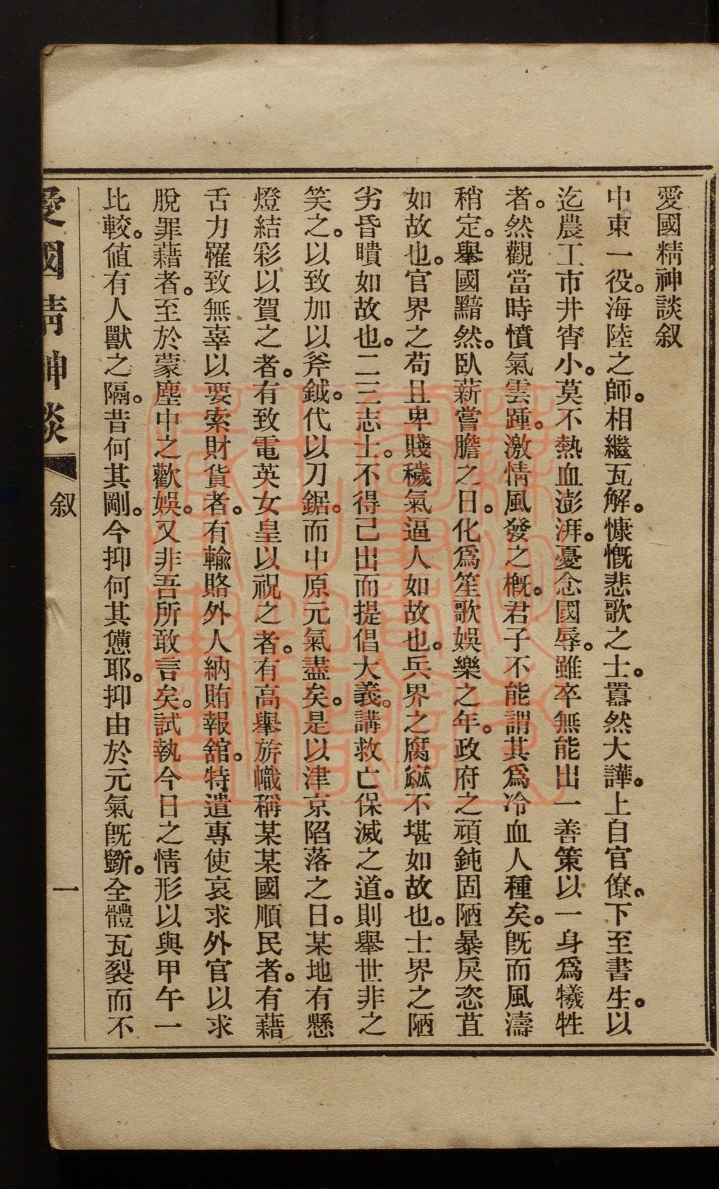 愛國精神談叙
中東一役。海陸之師。相繼瓦解。慷慨悲歌之士。囂然大譁。上自官僚。下至書生。以
迄農工市井宵小。莫不熱血澎湃。憂念國辱。雖卒無能出一善策以一身爲犧牲
者。然觀當時憤氣雲踵。激情風發之概。君子不能謂其爲冷血人種矣。旣而風濤
稍定。舉國黯然。臥薪嘗膽之日。化爲笙歌娛樂之年。政府之頑鈍固陋暴戾恣苴
如故也。官界之苟且卑賤穢氣逼人如故也。兵界之腐窳不堪如故也。士界之陋
劣昏瞶如故也。二三志士。不得已出而提倡大義。講救亡保滅之道。則舉世非之
笑之。以致加以斧鉞。代以刀鋸。而中原元氣盡矣。是以津京陷落之日。某地有懸
燈結彩以賀之者。有致電英女皇以祝之者。有高舉旂幟稱某某國順民者。有藉
舌力羅致無辜以要索財貨者。有輸賂外人納賄報舘。特遣專使哀求外官以求
脫罪藉者。至於蒙塵中之歡娛。又非吾所敢言矣。試執今日之情形以與甲午一
比較。値有人獸之隔。昔何其剛。今抑何其憊耶。抑由於元氣旣斲。全體瓦裂而不
愛國精神談
叙
一